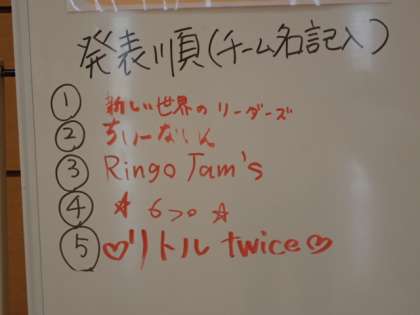 発表順(チーム名記入)
① 新しい世界のリーダーズ
②
③ Ringo Jam's
④ ☆ 6つ0 ☆
⑤ ♡リトル twice♡